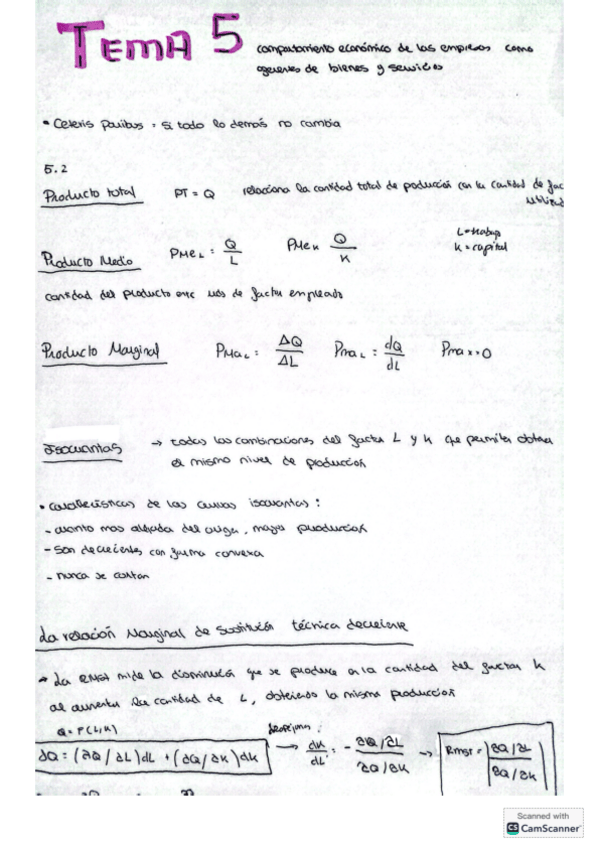 TEMA 5 comportamiento económico de las empresas como
agentes de bienes y servicios
• Ceteris paribus = si todo lo demás no cambia
5.2
Producto total PT = Q relaciona la cantidad total de producción con la cantidad de fac
Producto Medio PMe L = Q/L PMe K Q/K L=trabajo
K = capital
cantidad del producto que de factor empleado
Producto Marginal PMa L = ΔQ/ΔL PMa L = dQ/dL
Isocuantas → todas las combinaciones del factor L y K que permiten obtener
el mismo nivel de producción
• características de las curvas isocuantas :
- cuanto mas alejada del origen, mayor produccion
- son decrecientes con forma convexa
- nunca se cortan
La relación Marginal de sustitución técnica decreciente
→ La RMST mide la disminución que se produce en la cantidad del factor K
al aumentar la cantidad de L, obteniendo la misma produccion
Q = F(L,K)
dQ = (∂Q/∂L)dL + (∂Q/∂K)dK → dK/dL = - ∂Q/∂L / ∂Q/∂K → RMST = |∂Q/∂L / ∂Q/∂K|
Scanned with
CS CamScanner